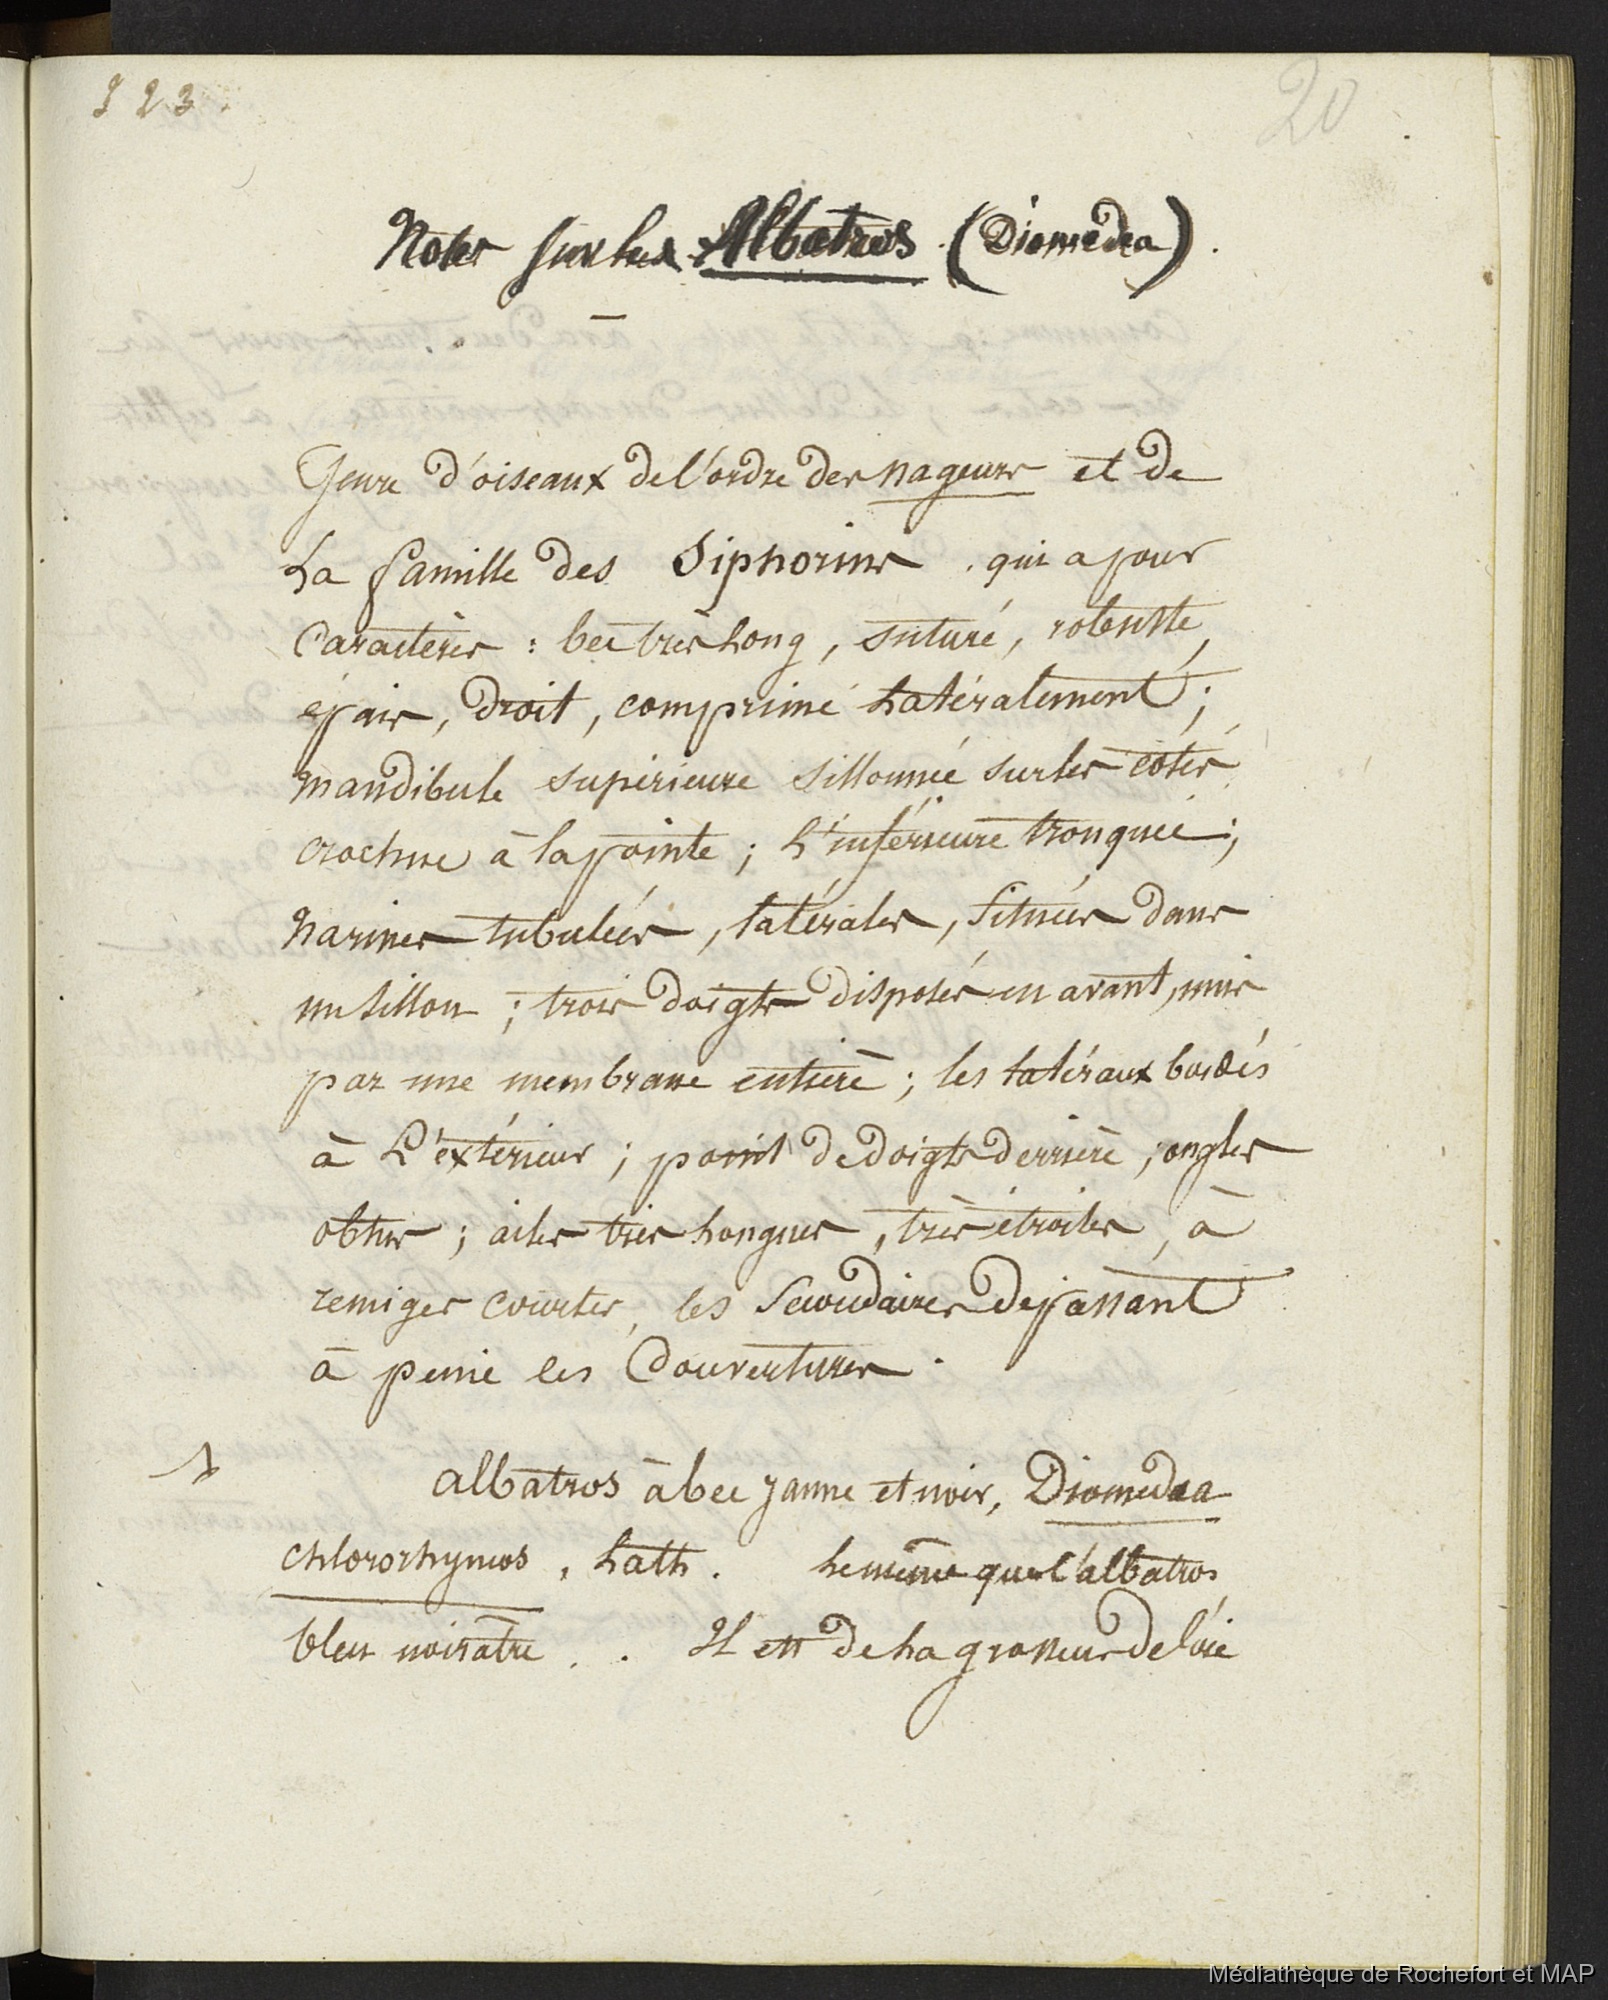 323.
20
Notes sur les Albatros (Diomédea).
Genre d'oiseaux de l'ordre des nageurs et de
La famille des Siphorins . qui a pour
Caractères : bec très long, suturé, robuste,
épais, droit, comprimé latéralement ;
mandibule supérieure sillonnée sur les côtés,
crochue à la pointe ; L'inférieure tronquée ;
Narines tubulées, latérales, situées dans
un sillon ; trois doigts disposés en avant, unis
par une membrane entière ; les latéraux bordés
à L'extérieur ; point de doigts derrière ; ongles
obtus ; ailes très longues, très étroites, à
remiges courtes, les Secondaires depassant
à peine les Couvertures.
1 albatros à bec jaune et noir, Diomedea
chlororhyncos, Lath. Le même que l'albatros
bleu noirâtre . . Il est de La grosseur de l'oie
Médiathèque de Rochefort et MAP